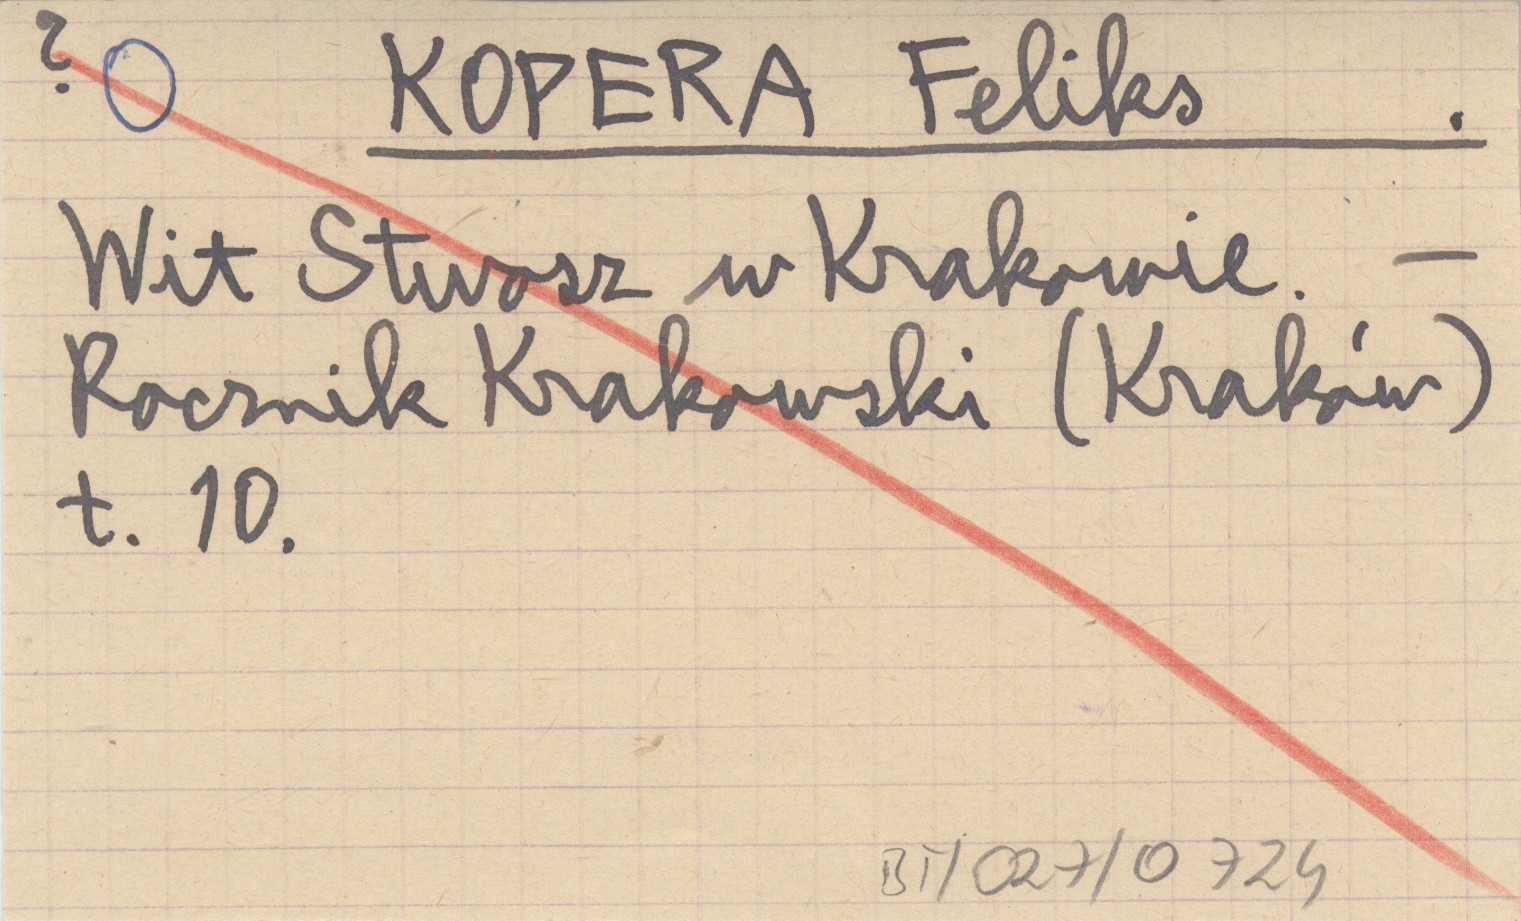 ?
KOPERA Feliks .
Wit Stwosz w Krakowie. —
Rocznik Krakowski (Kraków)
t. 10.
BT/027/0724